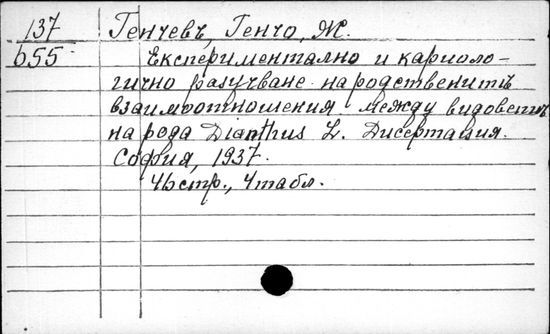 137 Генчевъ, Генчо, Ж.
b55 Експериментално и кариоло-
гично разучване народственитѣ
взаимоотношения между видоветѣ
на рода Dianthus L. Дисертация.
София, 1937.
46стр., 4табл.